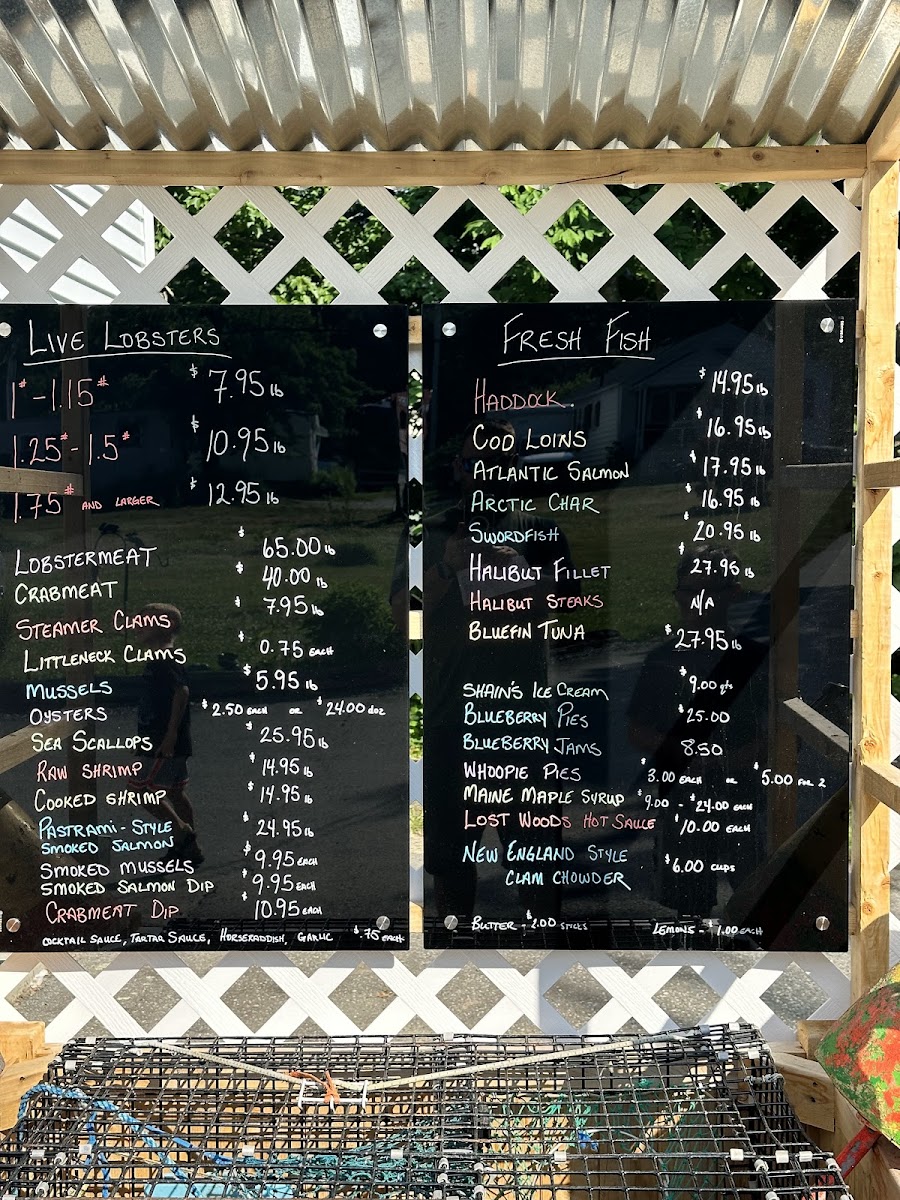 LIVE LOBSTERS
1# - 1.15# $7.95 lb
1.25# - 1.5# $10.95 lb
1.75# AND LARGER $12.95 lb
LOBSTERMEAT $65.00 lb
CRABMEAT $40.00 lb
STEAMER CLAMS 7.95 lb
LITTLENECK CLAMS $0.75 EACH
MUSSELS $5.95 lb
OYSTERS $2.50 EACH OR $24.00 doz
SEA SCALLOPS $25.95 lb
RAW SHRIMP $14.95 lb
COOKED SHRIMP $14.95 lb
PASTRAMI-STYLE
SMOKED SALMON $24.95 lb
SMOKED MUSSELS $9.95 EACH
SMOKED SALMON DIP $9.95 EACH
CRABMEAT DIP $10.95 EACH
COCKTAIL SAUCE, TARTAR SAUCE, HORSERADDISH, GARLIC $.75 EACH
FRESH FISH
HADDOCK $14.95 lb
COD LOINS $16.95 lb
ATLANTIC SALMON $17.95 lb
ARCTIC CHAR $16.95 lb
SWORDFISH $20.95 lb
HALIBUT FILLET $27.95 lb
HALIBUT STEAKS N/A
BLUEFIN TUNA $27.95 lb
SHAIN'S ICE CREAM $9.00 qts
BLUEBERRY PIES $25.00
BLUEBERRY JAMS 8.50
WHOOPIE PIES $3.00 EACH OR $5.00 FOR 2
MAINE MAPLE SYRUP $9.00 - $24.00 EACH
LOST WOODS HOT SAUCE $10.00 EACH
NEW ENGLAND STYLE
CLAM CHOWDER $6.00 CUPS
BUTTER - $2.00 STICKS LEMONS - $1.00 EACH